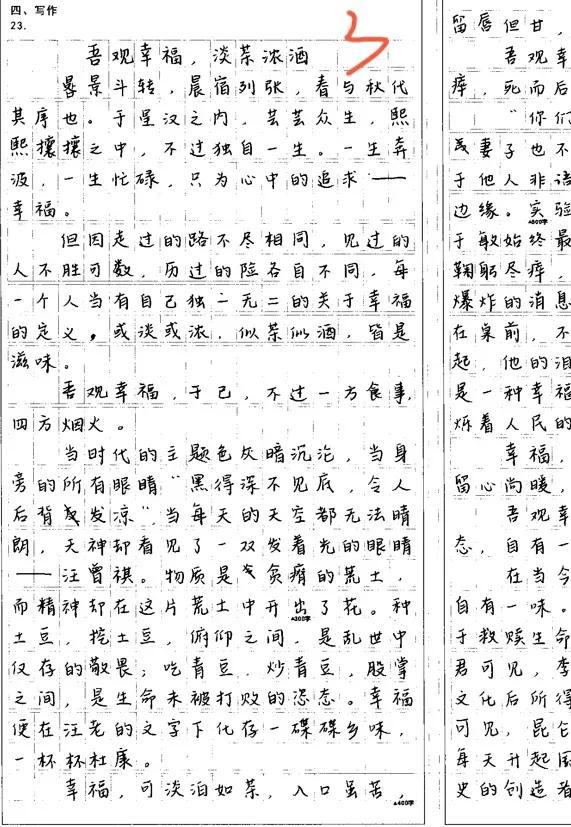 四、写作
23.
吾观幸福，淡茶浓酒
晷景斗转，晨宿列张，春与秋代
其序也。于星汉之内，芸芸众生，熙
熙攘攘之中，不过独自一生。一生奔
波，一生忙碌，只为心中的追求——
幸福。
但因走过的路不尽相同，见过的
人不胜可数，历过的险各自不同，每
一个人当有自己独一无二的关于幸福
的定义，或淡或浓，似茶似酒，皆是
滋味。
吾观幸福，于己，不过一方食事，
四方烟火。
当时代的主题色灰暗沉沦，当身
旁的所有眼睛“黑得深不见底，令人
后背发凉”，当每天的天空都无法晴
朗，天神却看见了一双发着光的眼睛
——汪曾祺。物质是贪瘠的荒土，
而精神却在这片荒土中开出了花。种
▲300字
土豆，挖土豆，俯仰之间，是乱世中
仅存的敬畏；吃青豆，炒青豆，股掌
之间，是生命未被打败的姿态。幸福
便在汪老的文字下化存一碟碟乡味，
一杯杯杜康。
幸福，可淡泊如茶，入口虽苦，
▲400字
留唇但甘，
吾观幸
瘁，死而后
“你们
及妻子也不
于他人非诸
边缘。实验
▲500字
于敏始终最
鞠躬尽瘁，
爆炸的消息
在桌前，不
起，他的泪
是一种幸福
烁着人民的
幸福，
留心尚暖，
吾观幸
态，自有一
在当今
自有一味。
于救赎生命
君可见，李
文化后所得
可见，昆仑
每天升起国
史的创造者